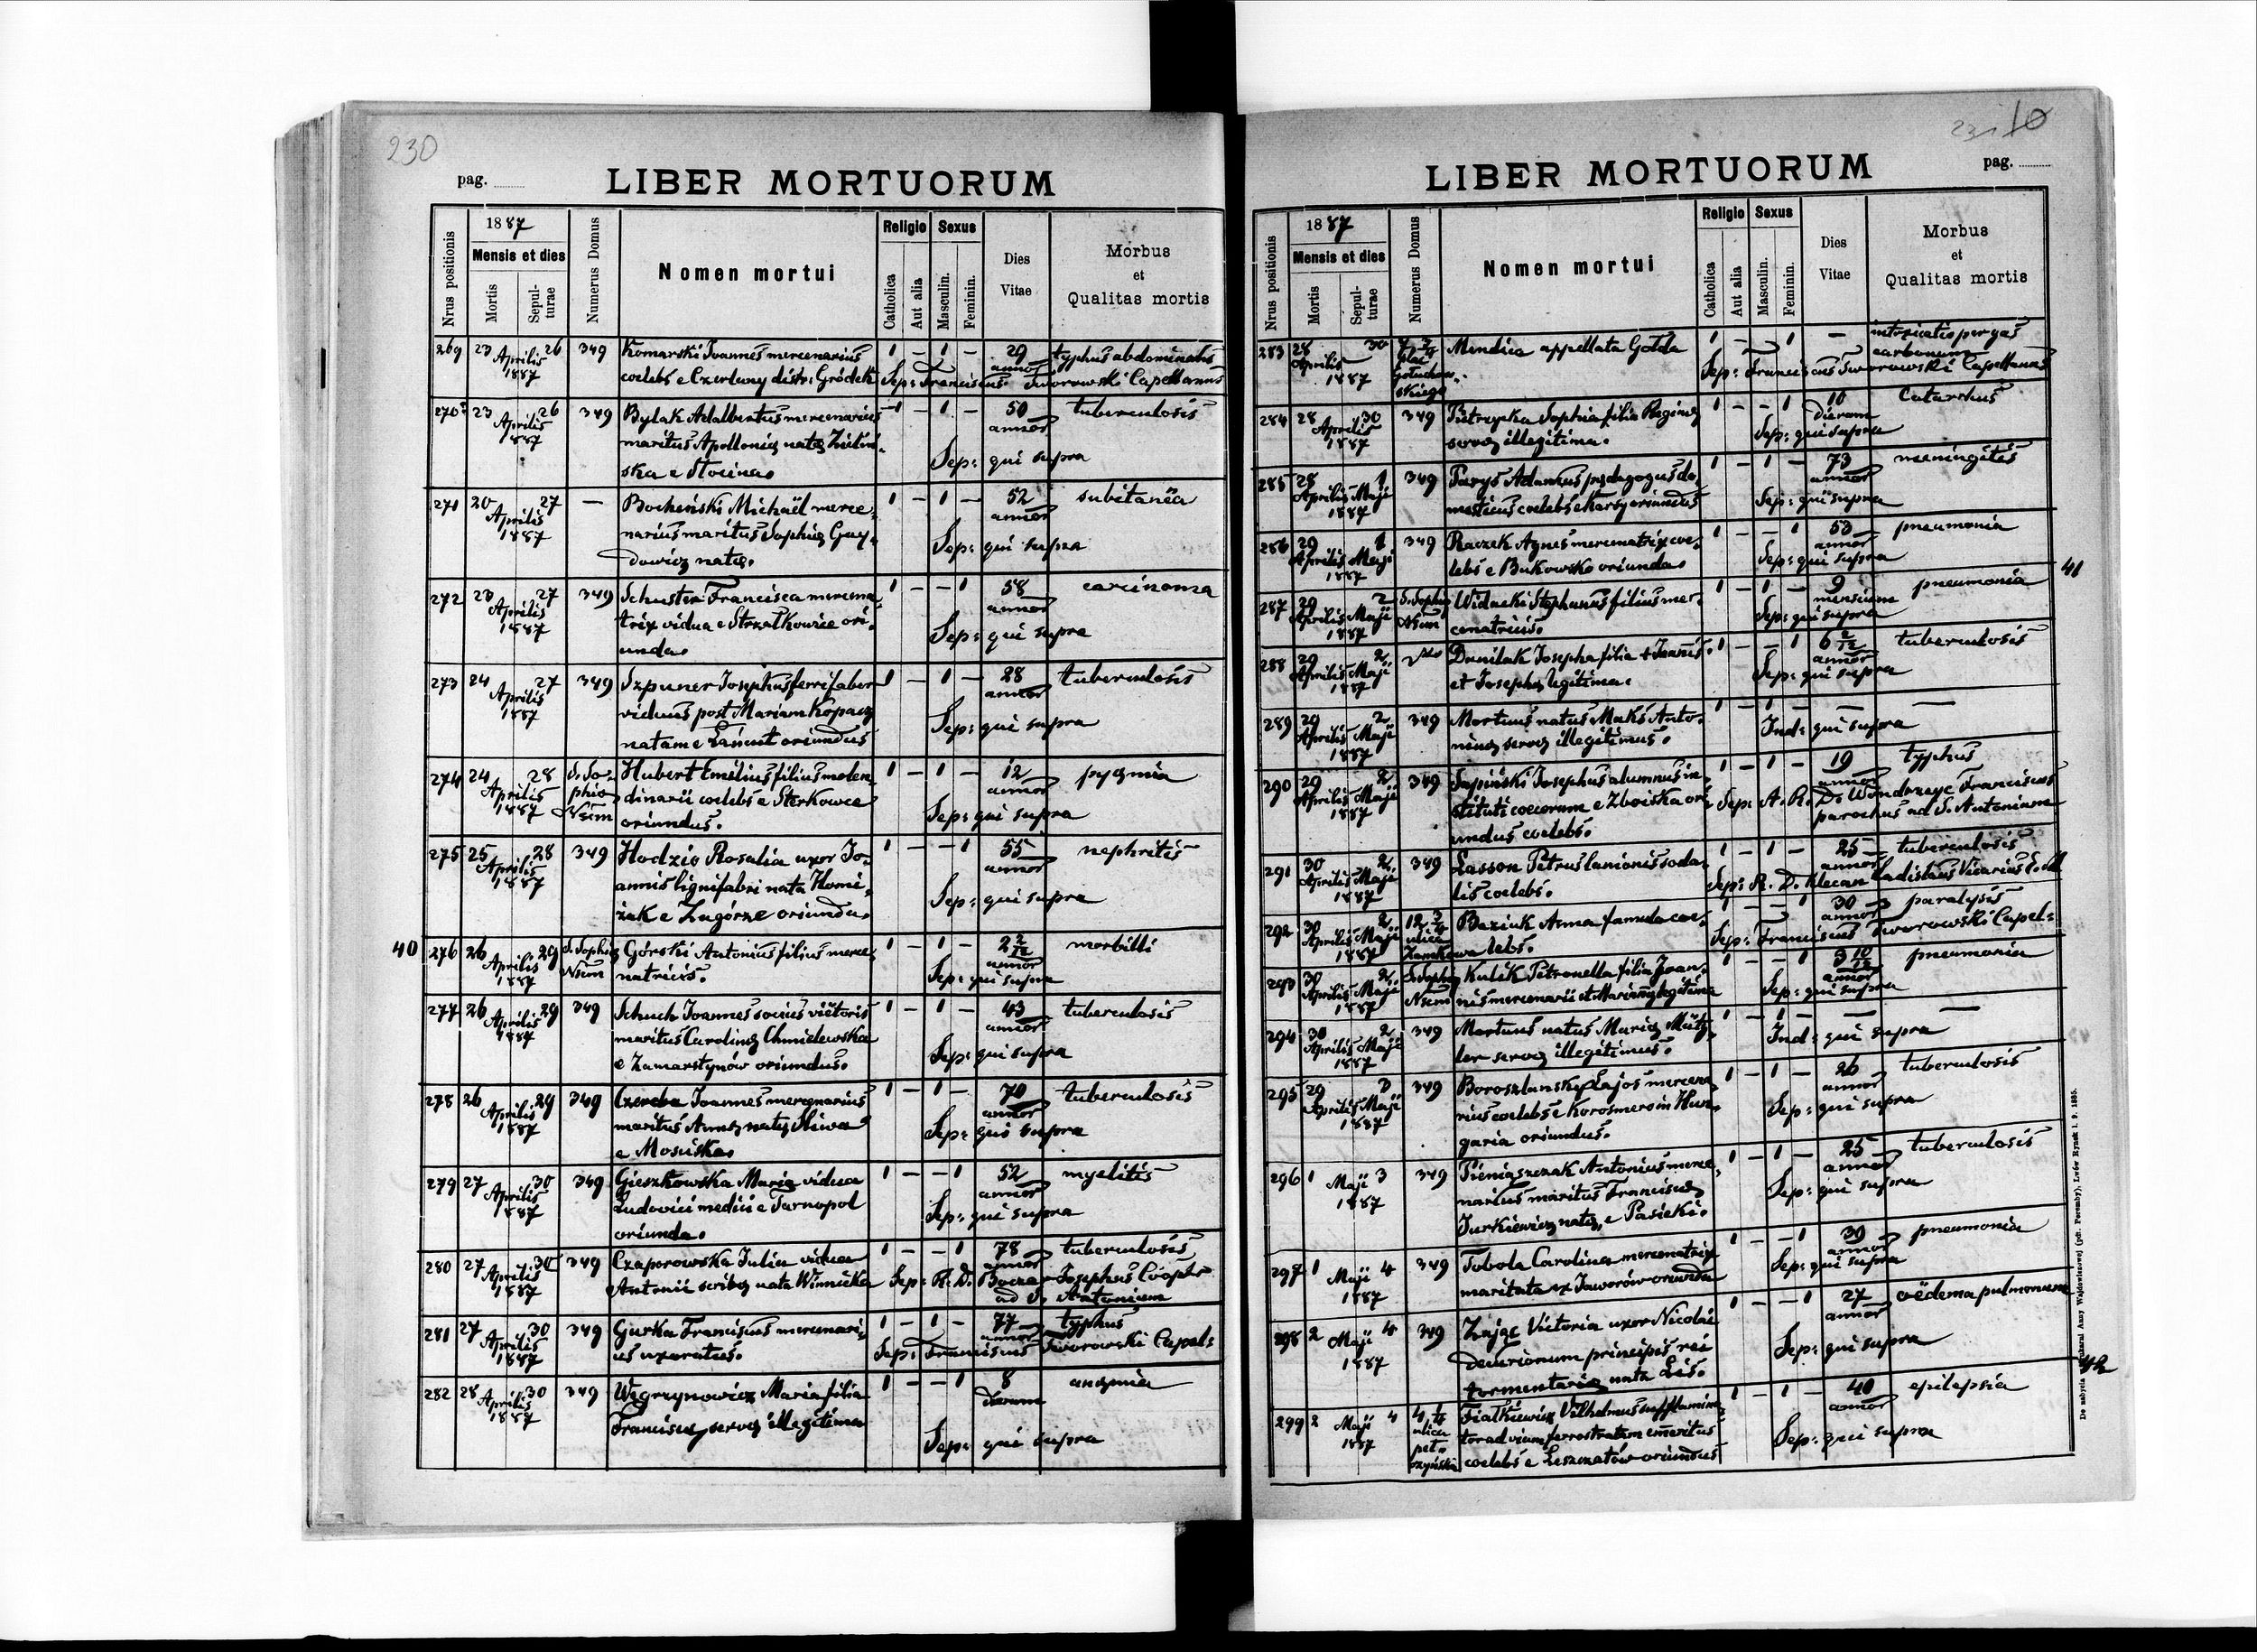 230
pag.
LIBER MORTUORUM
Nrus positionis
1887
Mensis et dies
Mortis
Sepul-
turae
Numerus Domus
Nomen mortui
Religio
Catholica
Aut alia
Sexus
Masculin.
Feminin.
Dies
Vitae
Morbus
et
Qualitas mortis
269 23 26 349 Komarski Joannes mercenarius 1 – 1 – 29 typhus abdominalis
Aprilis 1887 coelebs e Czerlany distr: Gródek annor
Sep: Franciscus Tworowski Capellanus
270 23 26 349 Bylak Adalbertus mercenarius 1 – 1 – 50 tuberculosis
Aprilis 1887 maritus Apolloniæ natæ annor
ska e Słocina Sep: qui supra
271 20 27 – Bocheński Michaël merce- 1 – 1 – 52 subitanëa
Aprilis 1887 narius maritus Sophiæ Gay- annor
dowicz natæ. Sep: qui supra
272 23 27 349 Schuster Francisca mercena- 1 – – 1 58 carcinoma
Aprilis 1887 trix vidua e Strzałkowice ori- annor
unda. Sep: qui supra
273 24 27 349 Szpuner Josephus ferrifaber 1 – 1 – 28 tuberculosis
Aprilis 1887 viduus post Mariam Kopacz annor
natam e Łańcut oriundus Sep: qui supra
274 24 28 S. So- Hubert Emilius filius molen- 1 – 1 – 12 pyæmia
Aprilis 1887 phia dinarii coelebs e Sterkowce annor
Nsum oriundus. Sep: qui supra
275 25 28 349 Hodzio Rosalia uxor Jo- 1 – – 1 55 nephritis
Aprilis 1887 annis lignifabri nata annor
żak e Zagórze oriunda. Sep: qui supra
40 276 26 29 S. Sophiæ Górski Antonius filius merce- 1 – 1 – 2 2/12 morbilli
Aprilis 1887 Nsum natricis. annor
Sep: qui supra
277 26 29 349 Schuch Joannes socius viëtoris 1 – 1 – 43 tuberculosis
Aprilis 1887 maritus Carolinæ Chmielewska annor
e Zamarstynów oriundus. Sep: qui supra
278 26 29 349 Czereba Joannes mercenarius 1 – 1 – 70 tuberculosis
Aprilis 1887 maritus Annæ natæ Śliwa annor
e Mościska. Sep: qui supra
279 27 30 349 Gieszkowska Maria vidua 1 – – 1 52 myelitis
Aprilis 1887 Ludovici medici e Tarnopol annor
oriunda. Sep: qui supra
280 27 30 349 Czaporowska Julia vidua 1 – – 1 78 tuberculosis
Aprilis 1887 Antonii scribæ nata Winnicka annor
Sep: R. D. Josephus Cooptr
ad S. Antonium
281 27 30 349 Gurka Franciscus mercenari- 1 – 1 – 77 typhus
Aprilis 1887 us uxoratus. annor
Sep: Franciscus Tworowski Capel:
282 28 30 349 Węgrzynowicz Maria filia 1 – – 1 8 anæmia
Aprilis 1887 Franciscæ servæ illegitima dierum
Sep: qui supra
231 10
pag.
LIBER MORTUORUM
Nrus positionis
1887
Mensis et dies
Mortis
Sepul-
turae
Numerus Domus
Nomen mortui
Religio
Catholica
Aut alia
Sexus
Masculin.
Feminin.
Dies
Vitae
Morbus
et
Qualitas mortis
283 28 30 Mendica appellata Golda 1 – – 1 – intoxicatio per gas
Aprilis 1887 plac Gołuchow- skiego carbonum
Sep: Franciscus Tworowski Capellanus
284 28 30 349 Pietrzycka Sophia filia Reginæ 1 – – 1 10 Catarrhus
Aprilis 1887 servæ illegitima. dierum
Sep: qui supra
285 28 1 349 Parys Adamus pædagogus do- 1 – 1 – 73 meningitis
Aprilis Maji 1887 mesticus coelebs e Karby oriundus annor
Sep: qui supra
286 29 1 349 Raczek Agnes mercenatrix coe- 1 – – 1 53 pneumonia
Aprilis Maji 1887 lebs e Bukowsko oriunda. annor
Sep: qui supra
41
287 29 2 S. Sophiæ Widacki Stephanus filius mer- 1 – 1 – 9 pneumonia
Aprilis Maji 1887 Nsum cenatricis. mensium
Sep: qui supra
288 29 2 Danilak Josepha filia + Joannis 1 – – 1 6 2/12 tuberculosis
Aprilis Maji 1887 et Josephæ legitima. annor
Sep: qui supra
289 29 2 349 Mortuus natus Maks Anto- 1 – 1 – – –
Aprilis Maji 1887 ninæ servæ illegitimus. Ind: qui supra
290 29 2 349 Sapiński Josephus alumnus in- 1 – 1 – 19 typhus
Aprilis Maji 1887 stituti coecorum e Zboiska ori- annor
undus coelebs. Sep: A. R. D. Wondrzeyc Franciscus
parochus ad S. Antonium
291 30 2 349 Lasson Petrus lanionis soda- 1 – 1 – 25 tuberculosis
Aprilis Maji 1887 lis coelebs. annor
Sep: R. D. Klecan Ladislaus Vicarius
292 30 2 12 3/4 Baziuk Anna famula coe- 1 – – 1 30 paralysis
Aprilis Maji 1887 ulica Zamkowa lebs. annor
Sep: Franciscus Tworowski Capel:
293 30 2 S. Sophiæ Kulik Petronella filia Joan- 1 – – 1 3 10/12 pneumonia
Aprilis Maji 1887 Nsum nis mercenarii et Mariannæ legitima annor
Sep: qui supra
294 30 2 349 Mortuus natus Mariæ Mütz- 1 – 1 – – –
Aprilis Maji 1887 ler servæ illegitimus. Ind: qui supra
295 29 3 349 Boroszlansky Lajos mercena- 1 – 1 – 26 tuberculosis
Aprilis Maji 1887 rius coelebs e Korosmero in Hun- annor
garia oriundus. Sep: qui supra
296 1 Maji 3 349 Pieniążczak Antonius merce- 1 – 1 – 25 tuberculosis
1887 narius maritus Franciscæ annor
Jurkiewicz natæ, e Pasieki. Sep: qui supra
297 1 Maji 4 349 Tobola Carolina mercenatrix 1 – – 1 30 pneumonia
1887 maritata ex Jaworów oriunda annor
Sep: qui supra
298 2 Maji 4 349 Zając Victoria uxor Nicolai 1 – – 1 27 oëdema pulmonum
1887 decurionum principis rei annor
tormentariæ nata Lis. Sep: qui supra
42
299 2 Maji 4 4 1/4 Fiałkiewicz Vilhelmus 1 – 1 – 40 epilepsia
1887 ulica tor ad viam ferrostratam emeritus annor
coelebs e Leszczatów oriundus Sep: qui supra